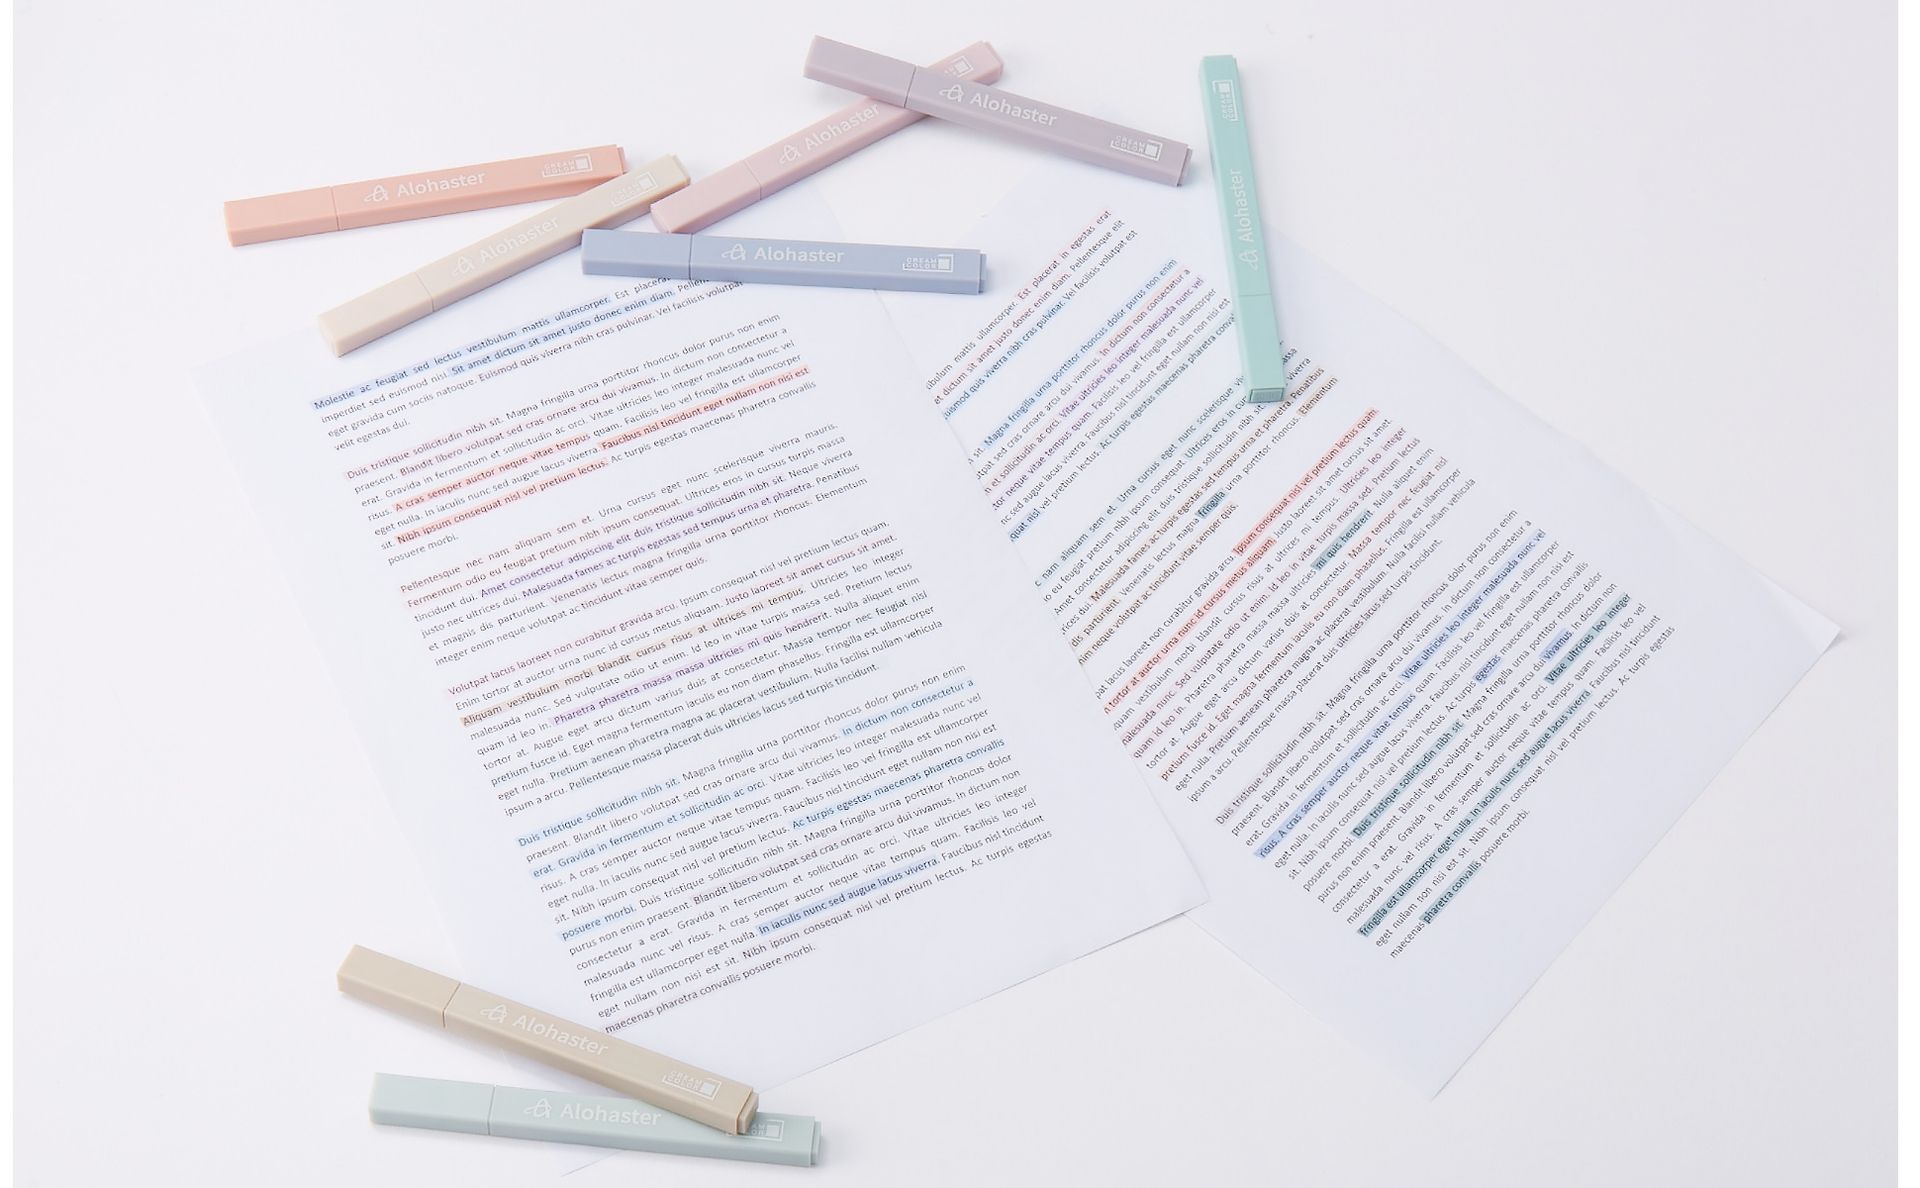 Alohaster
CREAM
COLOR
Alohaster
CREAM
COLOR
Alohaster
Alohaster
CREAM
COLOR
Alohaster
CREAM
COLOR
Alohaster
CREAM
COLOR
Molestie ac feugiat sed lectus vestibulum mattis ullamcorper. Est placerat
imperdiet sed euismod nisi. Sit amet dictum sit amet justo donec enim diam.
eget gravida cum sociis natoque. Euismod quis viverra nibh cras pulvinar. Vel facilisis volutpat
velit egestas dui.
Duis tristique sollicitudin nibh sit. Magna fringilla urna porttitor rhoncus dolor purus non enim
praesent. Blandit libero volutpat sed cras ornare arcu dui vivamus. In dictum non consectetur a
erat. Gravida in fermentum et sollicitudin ac orci. Vitae ultricies leo integer malesuada nunc vel
risus. A cras semper auctor neque vitae tempus quam. Facilisis leo vel fringilla est ullamcorper
eget nulla. In iaculis nunc sed augue lacus viverra. Faucibus nisl tincidunt eget nullam non nisi est
sit. Nibh ipsum consequat nisl vel pretium lectus. Ac turpis egestas maecenas pharetra convallis
posuere morbi.
Pellentesque nec nam aliquam sem et. Urna cursus eget nunc scelerisque viverra mauris.
Fermentum odio eu feugiat pretium nibh ipsum consequat. Ultrices eros in cursus turpis massa
tincidunt dui. Amet consectetur adipiscing elit duis tristique sollicitudin nibh sit. Neque viverra
justo nec ultrices dui. Malesuada fames ac turpis egestas sed tempus urna et pharetra. Penatibus
et magnis dis parturient. Venenatis lectus magna fringilla urna porttitor rhoncus. Elementum
integer enim neque volutpat ac tincidunt vitae semper quis.
Volutpat lacus laoreet non curabitur gravida arcu. Ipsum consequat nisl vel pretium lectus quam.
Enim tortor at auctor urna nunc id cursus metus aliquam. Justo laoreet sit amet cursus sit amet.
Aliquam vestibulum morbi blandit cursus risus at ultrices mi tempus. Ultricies leo integer
malesuada nunc. Sed vulputate odio ut enim. Id leo in vitae turpis massa sed. Pretium lectus
quam id leo in. Pharetra pharetra massa massa ultricies mi quis hendrerit. Nulla aliquet enim
tortor at. Augue eget arcu dictum varius duis at consectetur. Massa tempor nec feugiat nisl
pretium fusce id. Eget magna fermentum iaculis eu non diam phasellus. Fringilla est ullamcorper
eget nulla. Pretium aenean pharetra magna ac placerat vestibulum. Nulla facilisi nullam vehicula
ipsum a arcu. Pellentesque massa placerat duis ultricies lacus sed turpis tincidunt.
Duis tristique sollicitudin nibh sit. Magna fringilla urna porttitor rhoncus dolor purus non enim
praesent. Blandit libero volutpat sed cras ornare arcu dui vivamus. In dictum non consectetur a
erat. Gravida in fermentum et sollicitudin ac orci. Vitae ultricies leo integer malesuada nunc vel
risus. A cras semper auctor neque vitae tempus quam. Facilisis leo vel fringilla est ullamcorper
eget nulla. In iaculis nunc sed augue lacus viverra. Faucibus nisl tincidunt eget nullam non nisi est
sit. Nibh ipsum consequat nisl vel pretium lectus. Ac turpis egestas maecenas pharetra convallis
posuere morbi. Duis tristique sollicitudin nibh sit. Magna fringilla urna porttitor rhoncus dolor
purus non enim praesent. Blandit libero volutpat sed cras ornare arcu dui vivamus. In dictum non
consectetur a erat. Gravida in fermentum et sollicitudin ac orci. Vitae ultricies leo integer
malesuada nunc vel risus. A cras semper auctor neque vitae tempus quam. Facilisis leo vel
fringilla est ullamcorper eget nulla. In iaculis nunc sed augue lacus viverra. Faucibus nisl tincidunt
eget nullam non nisi est sit. Nibh ipsum consequat nisl vel pretium lectus. Ac turpis egestas
maecenas pharetra convallis posuere morbi.
mattis ullamcorper. Est placerat in egestas erat
dictum sit amet justo donec enim diam. Pellentesque elit
quis viverra nibh cras pulvinar. Vel facilisis volutpat est
Magna fringilla urna porttitor rhoncus dolor purus non enim
sed cras ornare arcu dui vivamus. In dictum non consectetur a
et sollicitudin ac orci. Vitae ultricies leo integer malesuada nunc vel
neque vitae tempus quam. Facilisis leo vel fringilla est ullamcorper
sed augue lacus viverra. Faucibus nisl tincidunt eget nullam non nisi est
nisl vel pretium lectus. Ac turpis egestas maecenas pharetra
aliquam sem et. Urna cursus eget nunc scelerisque
eu feugiat pretium nibh ipsum consequat. Ultrices eros in
Amet consectetur adipiscing elit duis tristique sollicitudin nibh
dui. Malesuada fames ac turpis egestas sed tempus urna et pharetra. Penatibus
dis parturient. Venenatis lectus magna fringilla urna porttitor rhoncus. Elementum
enim neque volutpat ac tincidunt vitae semper quis.
lacus laoreet non curabitur gravida arcu. Ipsum consequat nisl vel pretium lectus quam.
tortor at auctor urna nunc id cursus metus aliquam. Justo laoreet sit amet cursus sit amet.
vestibulum morbi blandit cursus risus at ultrices mi tempus. Ultricies leo integer
malesuada nunc. Sed vulputate odio ut enim. Id leo in vitae turpis massa sed. Pretium lectus
quam id leo in. Pharetra pharetra massa massa ultricies mi quis hendrerit. Nulla aliquet enim
tortor at. Augue eget arcu dictum varius duis at consectetur. Massa tempor nec feugiat nisl
pretium fusce id. Eget magna fermentum iaculis eu non diam phasellus. Fringilla est ullamcorper
eget nulla. Pretium aenean pharetra magna ac placerat vestibulum. Nulla facilisi nullam vehicula
ipsum a arcu. Pellentesque massa placerat duis ultricies lacus sed turpis tincidunt.
Duis tristique sollicitudin nibh sit. Magna fringilla urna porttitor rhoncus dolor purus non enim
praesent. Blandit libero volutpat sed cras ornare arcu dui vivamus. In dictum non consectetur a
erat. Gravida in fermentum et sollicitudin ac orci. Vitae ultricies leo integer malesuada nunc vel
risus. A cras semper auctor neque vitae tempus quam. Facilisis leo vel fringilla est ullamcorper
eget nulla. In iaculis nunc sed augue lacus viverra. Faucibus nisl tincidunt eget nullam non nisi est
sit. Nibh ipsum consequat nisl vel pretium lectus. Ac turpis egestas maecenas pharetra convallis
posuere morbi. Duis tristique sollicitudin nibh sit. Magna fringilla urna porttitor rhoncus dolor
purus non enim praesent. Blandit libero volutpat sed cras ornare arcu dui vivamus. In dictum non
consectetur a erat. Gravida in fermentum et sollicitudin ac orci. Vitae ultricies leo integer
malesuada nunc vel risus. A cras semper auctor neque vitae tempus quam. Facilisis leo vel
fringilla est ullamcorper eget nulla. In iaculis nunc sed augue lacus viverra. Faucibus nisl tincidunt
eget nullam non nisi est sit. Nibh ipsum consequat nisl vel pretium lectus. Ac turpis egestas
maecenas pharetra convallis posuere morbi.
Alohaster
CREAM
COLOR
Alohaster